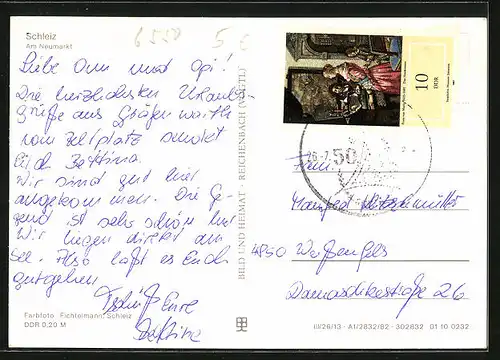 Schleiz
Am Neumarkt
6550 5 €
Liebe Omi und Opi!
Die herzlichsten Urlaubs-
grüße aus Gräfenwarth
vom Zeltplatz sendet
Euch Bettina.
Wir sind gut hier
angekommen. Die Ge-
gend ist sehr schön hier
Wir liegen direkt am
See. Also laßt es Euch
gutgehen
Tschüß Eure
Bettina
Farbfoto Fichtelmann, Schleiz
DDR 0,20 M
BILD UND HEIMAT · REICHENBACH (VOGTL)
10
DDR
50
Fam.
Manfred
4850 Weißenfels
Damaschkestraße 26
III/26/13 · A1/2832/82 · 302832 01 10 0232